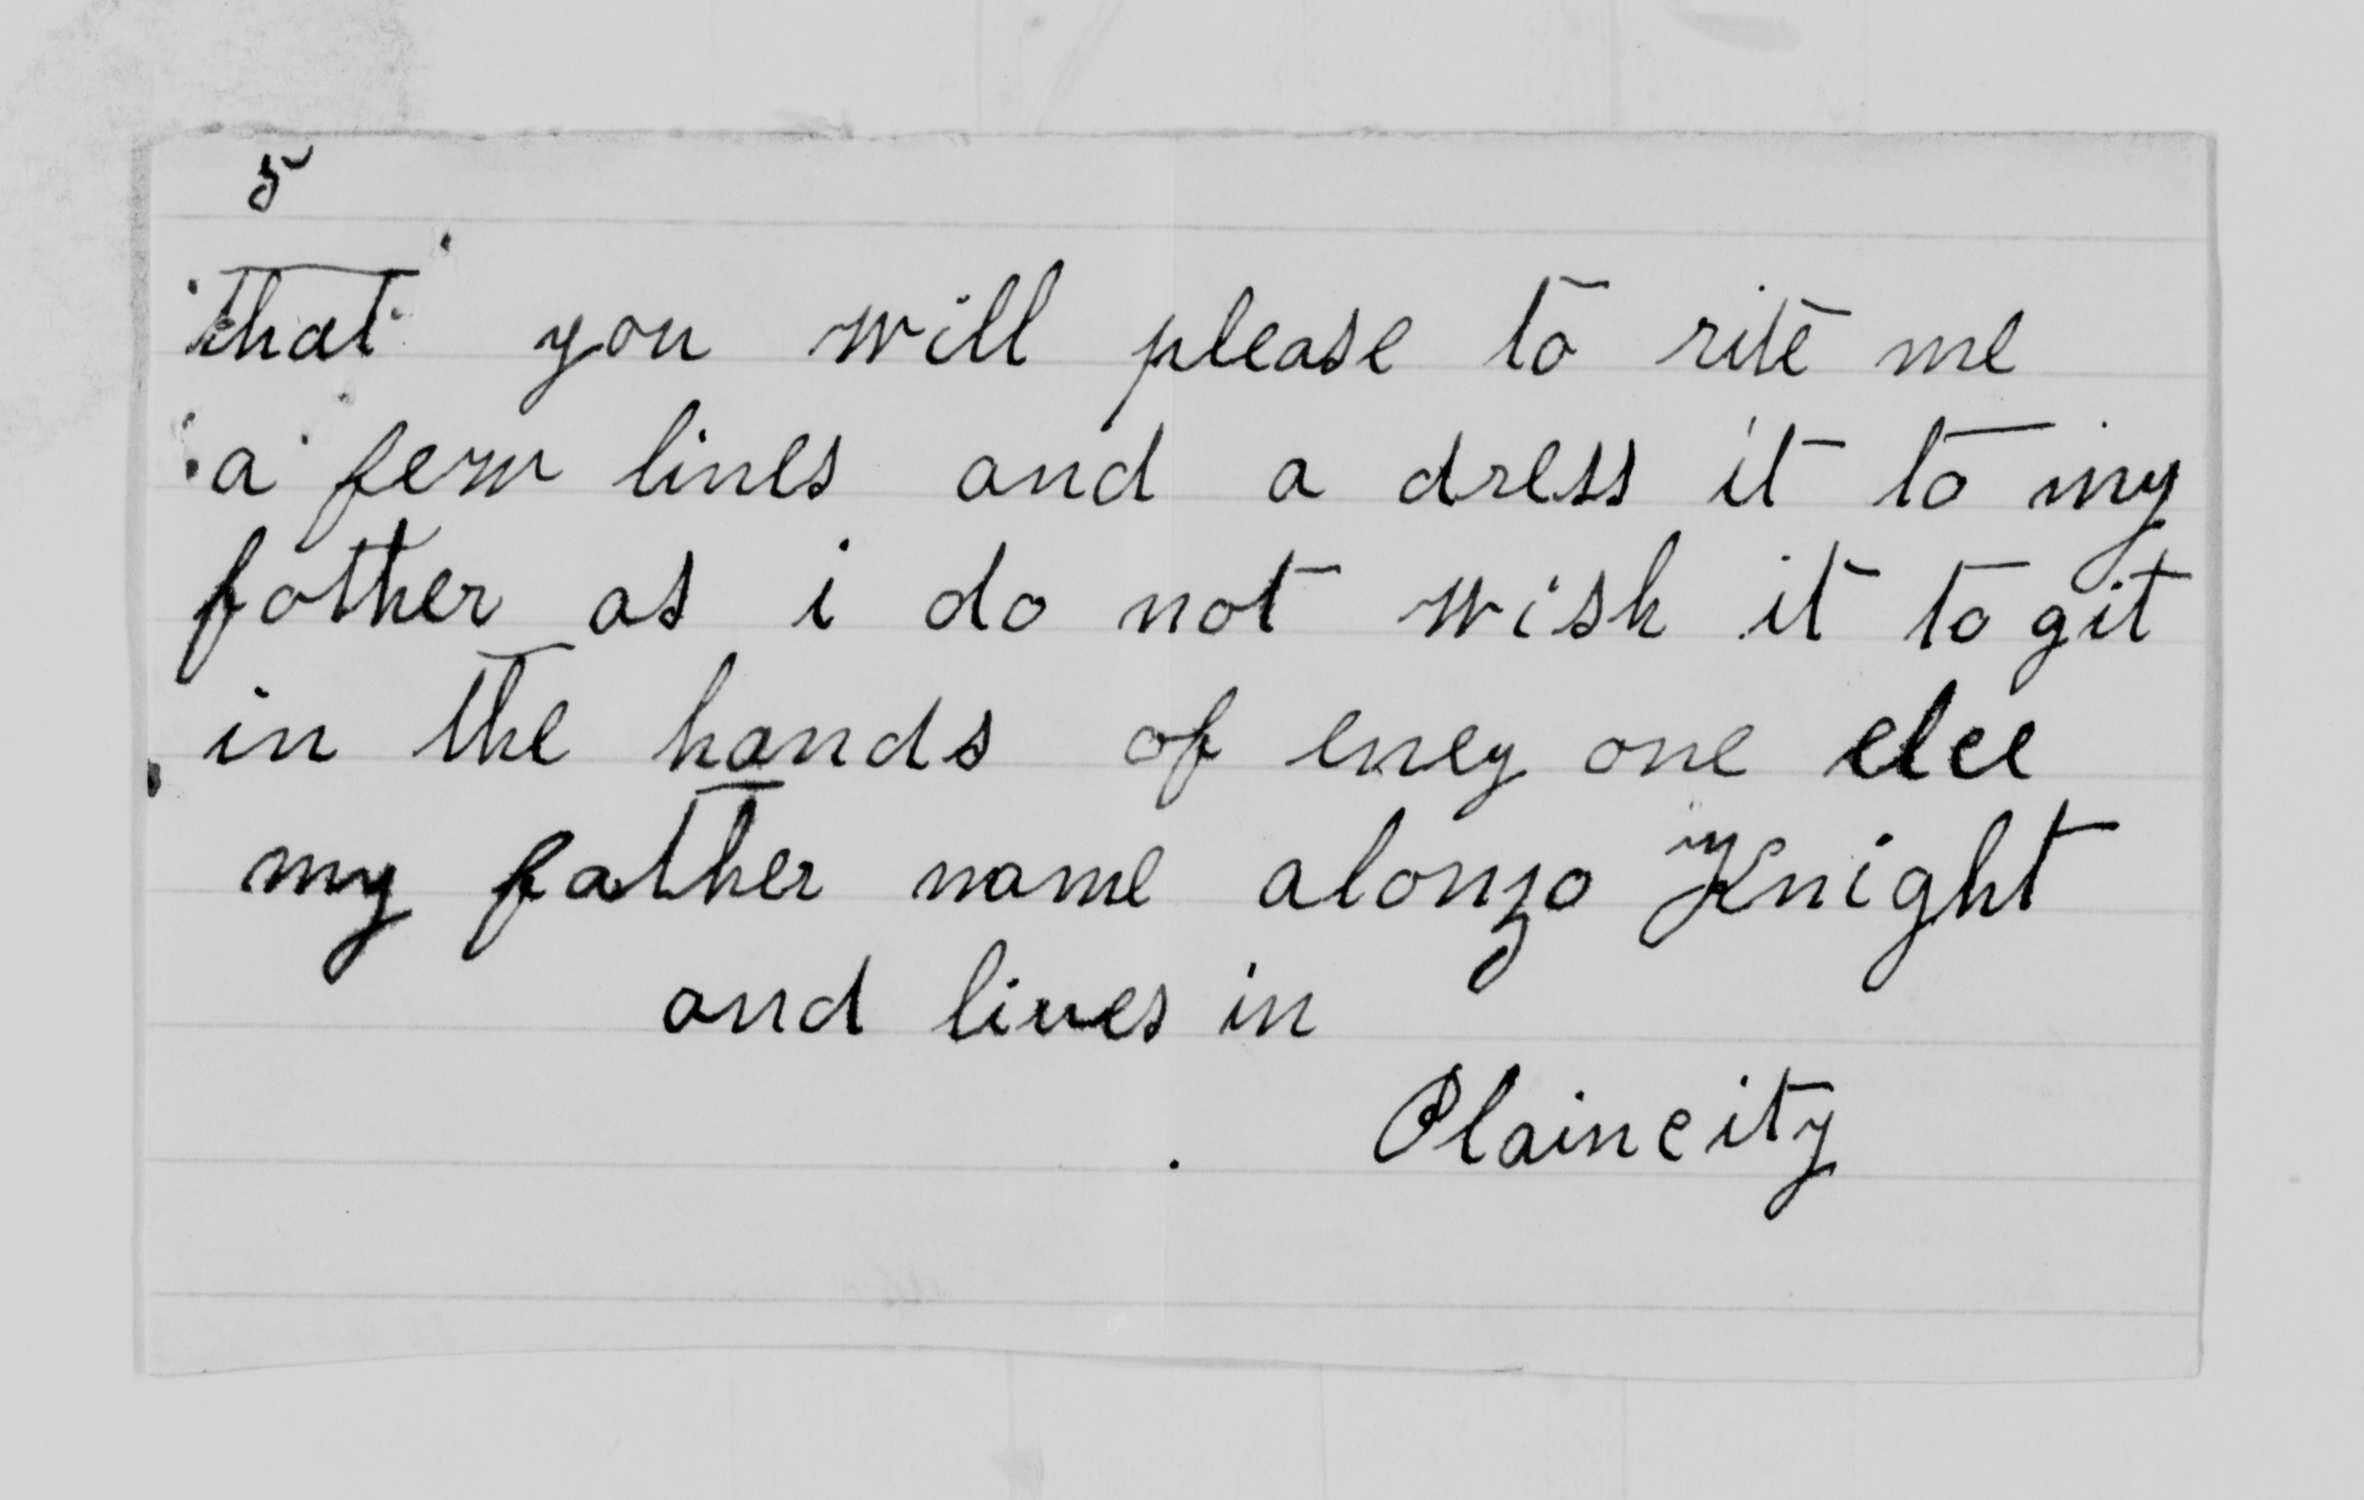 5
that you will please to rite me
a few lines and a dress it to my
father as i do not wish it to git
in the hands of eney one elce
my father name alonzo Knight
and lives in
Plaincity